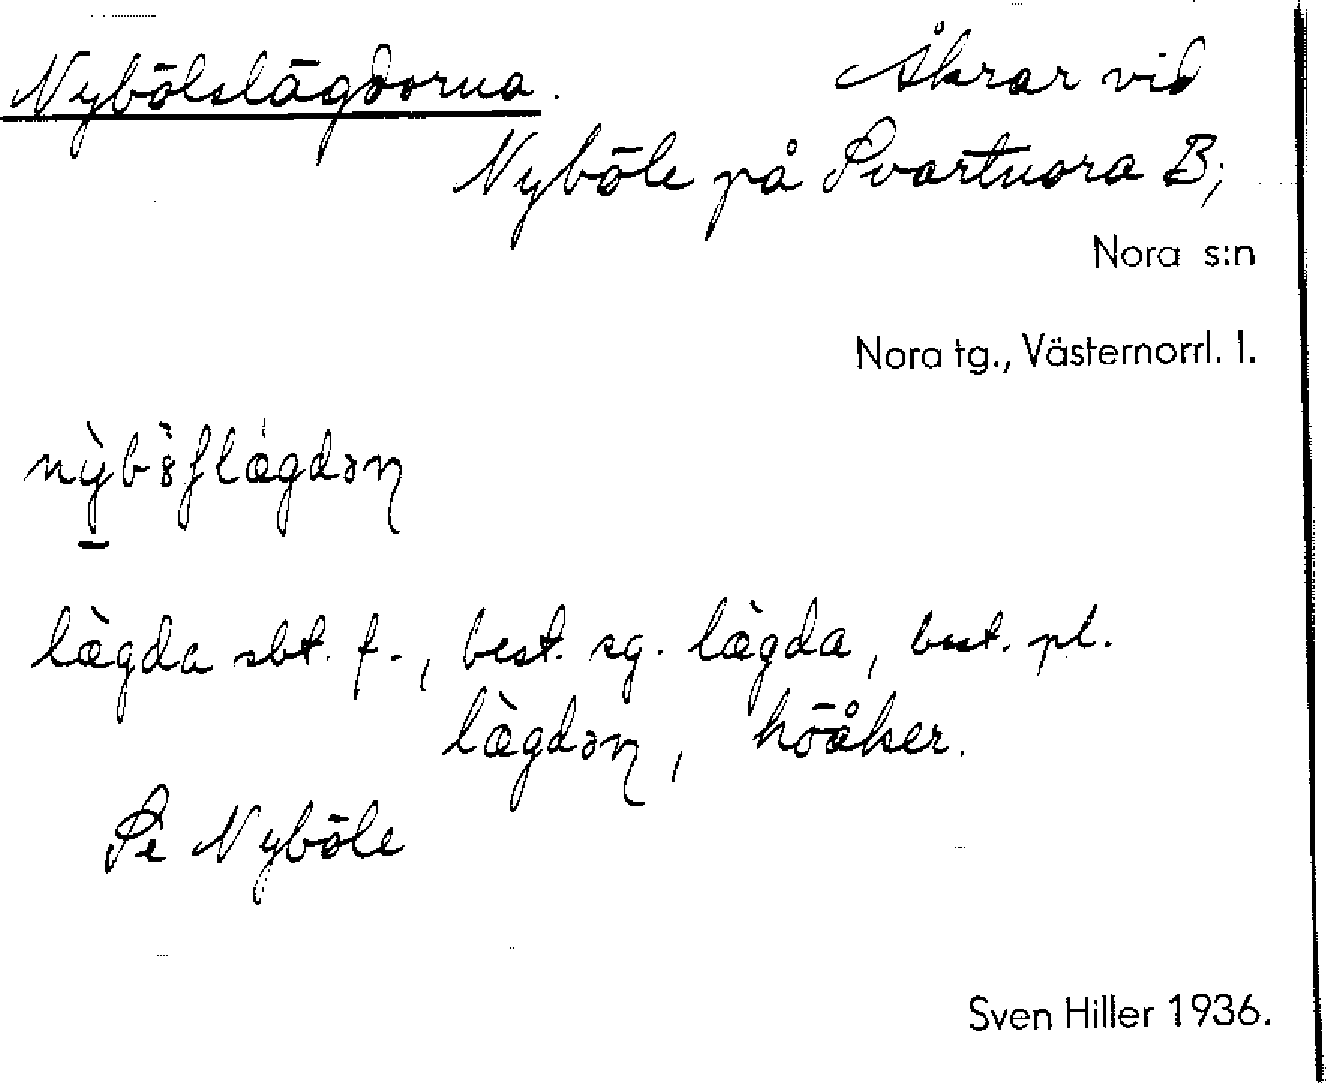 Nybölslägdorna. Åkrar vid
Nyböle på Svartnora B;
Nora s:n
Nora tg., Västernorrl. l.
lægda sbt. f., best. sg. lægda, best. pl.
lægdəɳ, höåker.
Se Nyböle
Sven Hiller 1936.